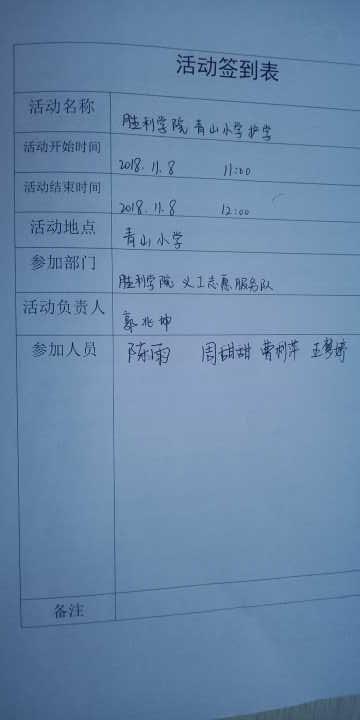 活动签到表
活动名称 胜利学院青山小学护学
活动开始时间 2018.11.8 11:00
活动结束时间 2018.11.8 12:00
活动地点 青山小学
参加部门 胜利学院义工志愿服务队
活动负责人 郭兆坤
参加人员 陈雨 周甜甜 曹利萍 王梦婷
备注